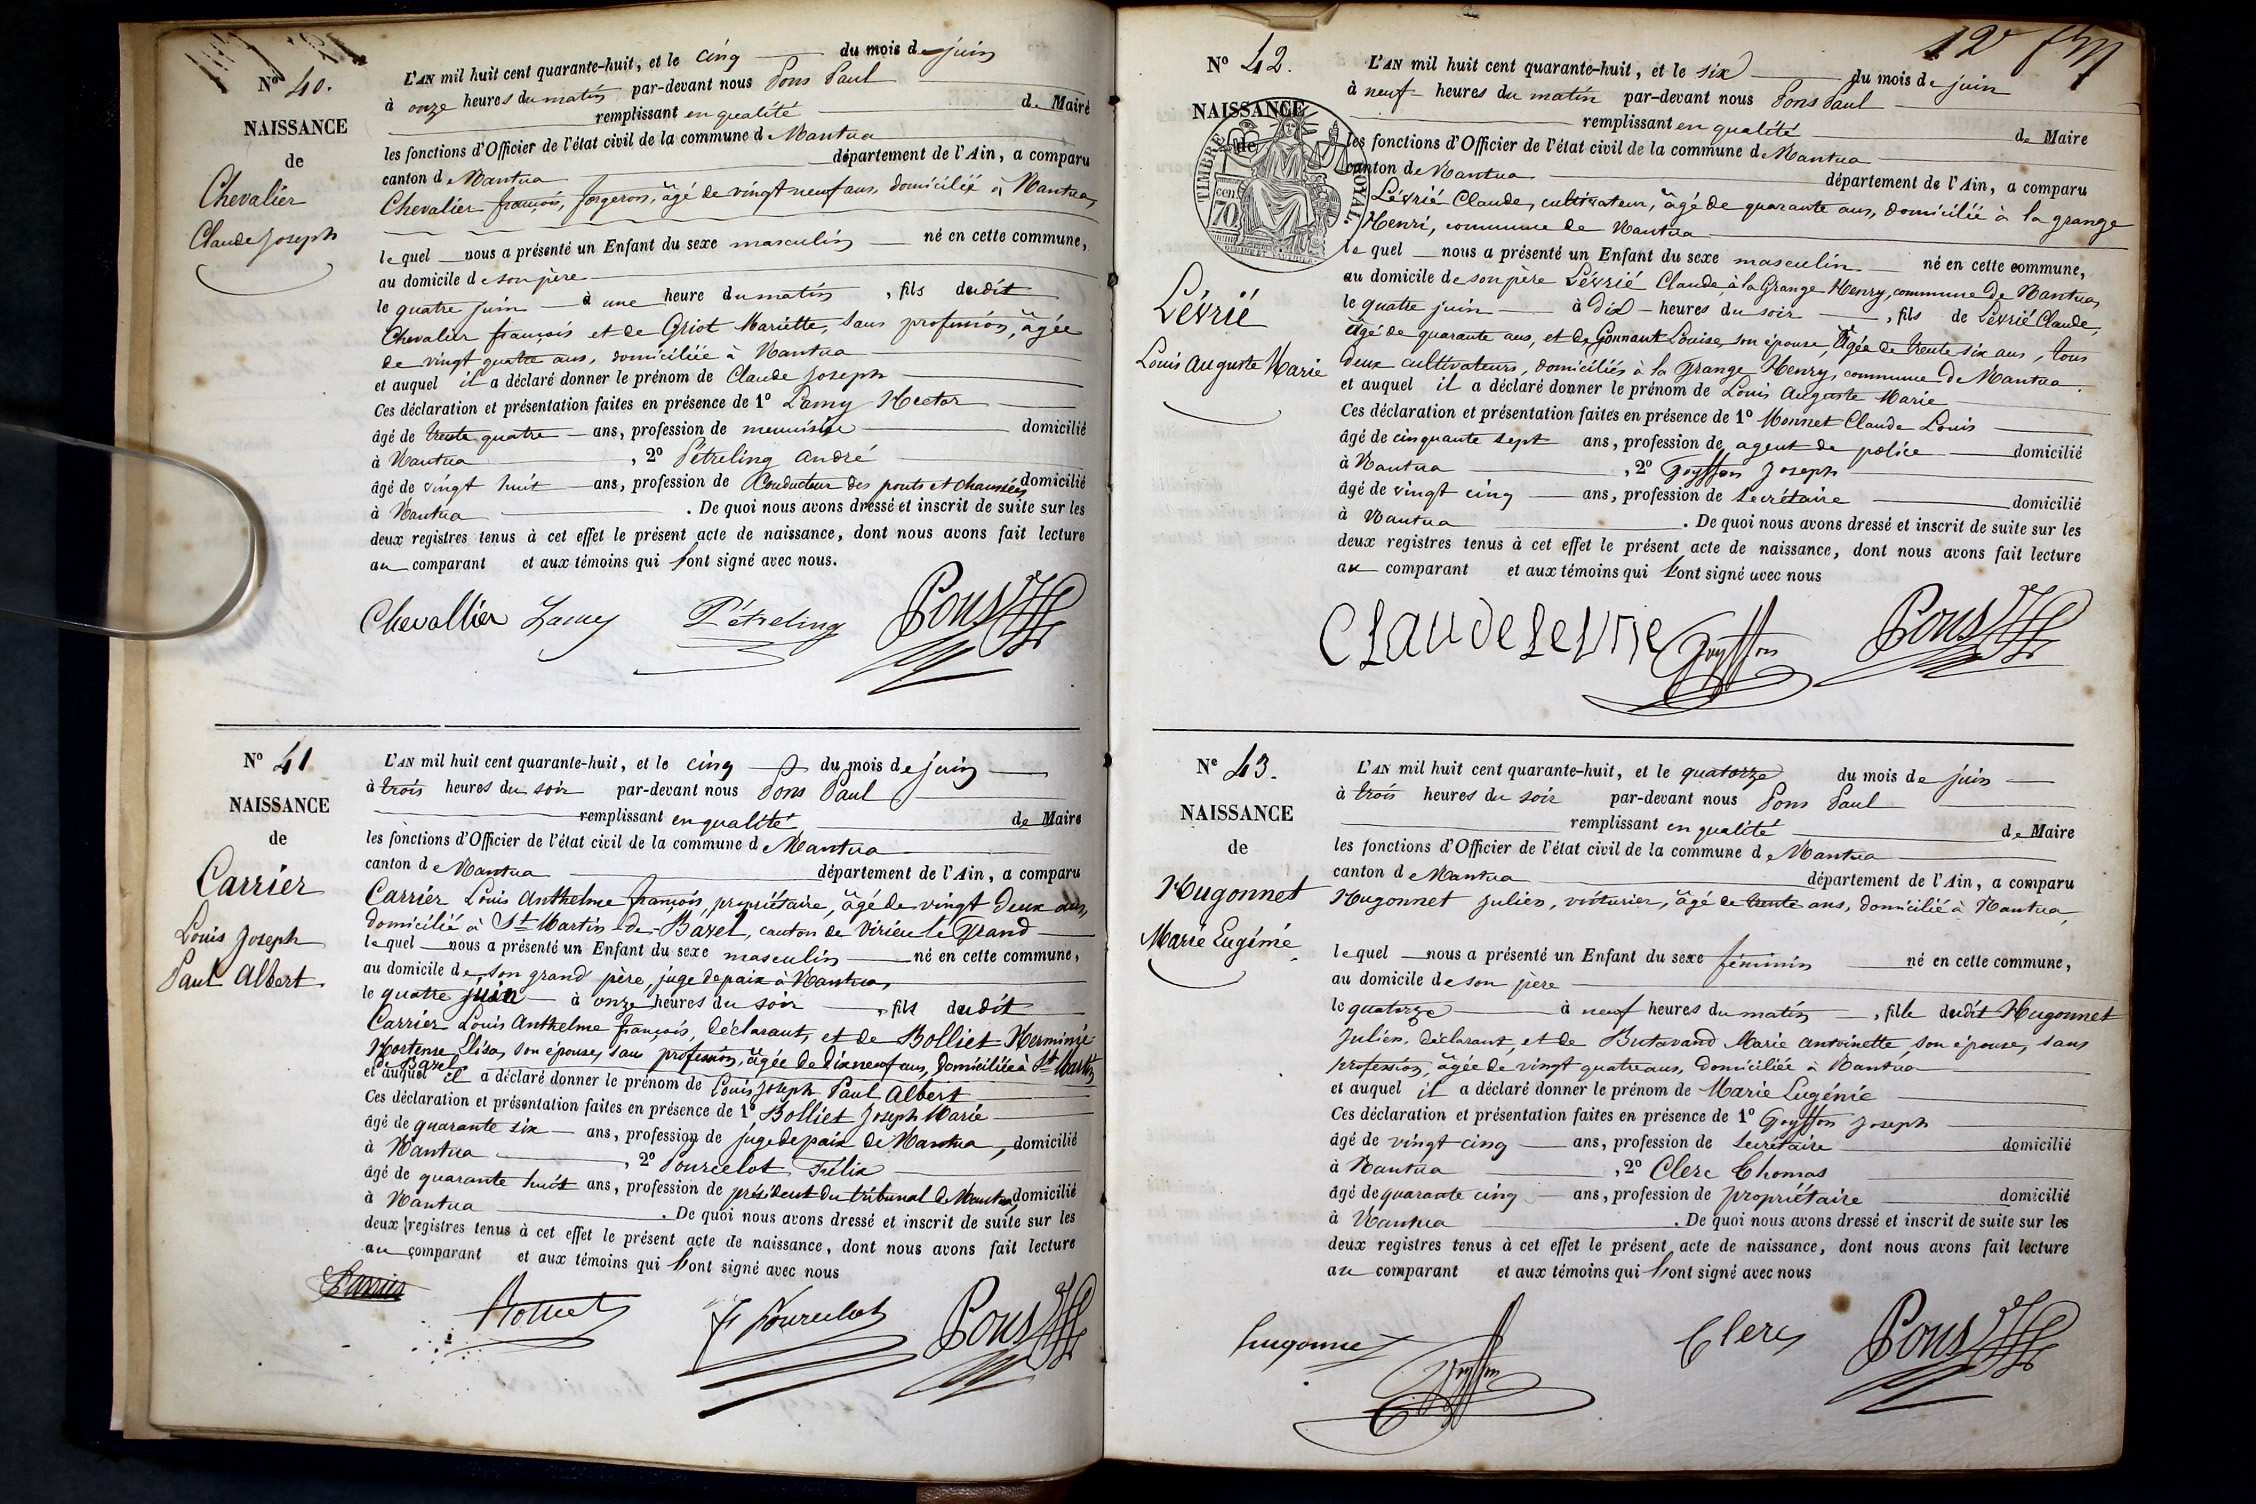 No 40.
NAISSANCE
de
Chevalier
Claude Joseph
L'AN mil huit cent quarante-huit, et le cinq du mois de juin
à onze heures du matin par-devant nous Pons Paul
remplissant en qualité de Maire
les fonctions d'Officier de l'état civil de la commune de Nantua
canton de Nantua département de l'Ain, a comparu
Chevalier françois, forgeron, âgé de vingt neuf ans, domicilié à Nantua,
lequel nous a présenté un Enfant du sexe masculin né en cette commune,
au domicile de son père
le quatre juin à une heure du matin, fils dudit
Chevalier françois et de Griot Mariette, sans profession, âgée
de vingt quatre ans, domiciliée à Nantua
et auquel il a déclaré donner le prénom de Claude Joseph
Ces déclaration et présentation faites en présence de 1º Lamy Hector
âgé de trente quatre ans, profession de menuisier domicilié
à Nantua, 2º Pétreling André
âgé de vingt huit ans, profession de Conducteur des ponts et chaussées domicilié
à Nantua. De quoi nous avons dressé et inscrit de suite sur les
deux registres tenus à cet effet le présent acte de naissance, dont nous avons fait lecture
au comparant et aux témoins qui sont signé avec nous.
Chevallier Lamy Pétreling Pons
No 41
NAISSANCE
de
Carrier
Louis Joseph
Paul Albert
L'AN mil huit cent quarante-huit, et le cinq du mois de juin
à trois heures du soir par-devant nous Pons Paul
remplissant en qualité de Maire
les fonctions d'Officier de l'état civil de la commune de Nantua
canton de Nantua département de l'Ain, a comparu
Carrier Louis Anthelme françois, propriétaire, âgé de vingt deux ans,
domicilié à St Martin-de-Bavel, canton de Virieu le Grand
lequel nous a présenté un Enfant du sexe masculin né en cette commune,
au domicile de son grand père, juge de paix à Nantua,
le quatre juin à onze heures du soir, fils dudit
Carrier Louis Anthelme françois, déclarant, et de Bolliet Herminie
Hortense Elisa, son épouse, sans profession, âgée de dix neuf ans, domiciliée à St Martin
Bavel
et auquel il a déclaré donner le prénom de Louis Joseph Paul Albert
Ces déclaration et présentation faites en présence de 1º Bolliet Joseph Marie
âgé de quarante six ans, profession de juge de paix de Nantua, domicilié
à Nantua, 2º Pourcelot Félix
âgé de quarante huit ans, profession de président du tribunal de Nantua, domicilié
à Nantua. De quoi nous avons dressé et inscrit de suite sur les
deux registres tenus à cet effet le présent acte de naissance, dont nous avons fait lecture
au comparant et aux témoins qui sont signé avec nous
Carrier Bolliet F Pourcelot Pons
12
No 42.
NAISSANCE
de
TIMBRE ROYAL
cen 70
Lévrié
Louis Auguste Marie
L'AN mil huit cent quarante-huit, et le six du mois de juin
à neuf heures du matin par-devant nous Pons Paul
remplissant en qualité de Maire
les fonctions d'Officier de l'état civil de la commune de Nantua
canton de Nantua département de l'Ain, a comparu
Lévrié Claude, cultivateur, âgé de quarante ans, domicilié à la grange
Henri, commune de Nantua
lequel nous a présenté un Enfant du sexe masculin né en cette commune,
au domicile de son père Lévrié Claude, à la Grange Henry, commune de Nantua,
le quatre juin à dix heures du soir, fils de Lévrié Claude,
âgé de quarante ans, et de Gonnant Louise, son épouse, âgée de trente six ans, tous
deux cultivateurs, domiciliés à la Grange Henry, commune de Nantua
et auquel il a déclaré donner le prénom de Louis Auguste Marie
Ces déclaration et présentation faites en présence de 1º Monnet Claude Louis
âgé de cinquante sept ans, profession de agent de police domicilié
à Nantua, 2º Goyffon Joseph
âgé de vingt cinq ans, profession de secrétaire domicilié
à Nantua. De quoi nous avons dressé et inscrit de suite sur les
deux registres tenus à cet effet le présent acte de naissance, dont nous avons fait lecture
au comparant et aux témoins qui sont signé avec nous
Claude Levrie Goyffon Pons
No 43.
NAISSANCE
de
Hugonnet
Marie Eugénie
L'AN mil huit cent quarante-huit, et le quatorze du mois de juin
à trois heures du soir par-devant nous Pons Paul
remplissant en qualité de Maire
les fonctions d'Officier de l'état civil de la commune de Nantua
canton de Nantua département de l'Ain, a comparu
Hugonnet Julien, voiturier, âgé de trente ans, domicilié à Nantua,
lequel nous a présenté un Enfant du sexe féminin né en cette commune,
au domicile de son père
le quatorze à neuf heures du matin, fille dudit Hugonnet
Julien, déclarant, et de Butavand Marie Antoinette, son épouse, sans
profession, âgée de vingt quatre ans, domiciliée à Nantua
et auquel il a déclaré donner le prénom de Marie Eugénie
Ces déclaration et présentation faites en présence de 1º Goyffon Joseph
âgé de vingt cinq ans, profession de secrétaire domicilié
à Nantua, 2º Clerc Thomas
âgé de quarante cinq ans, profession de propriétaire domicilié
à Nantua. De quoi nous avons dressé et inscrit de suite sur les
deux registres tenus à cet effet le présent acte de naissance, dont nous avons fait lecture
au comparant et aux témoins qui sont signé avec nous
hugonnet Goyffon Clerc Pons